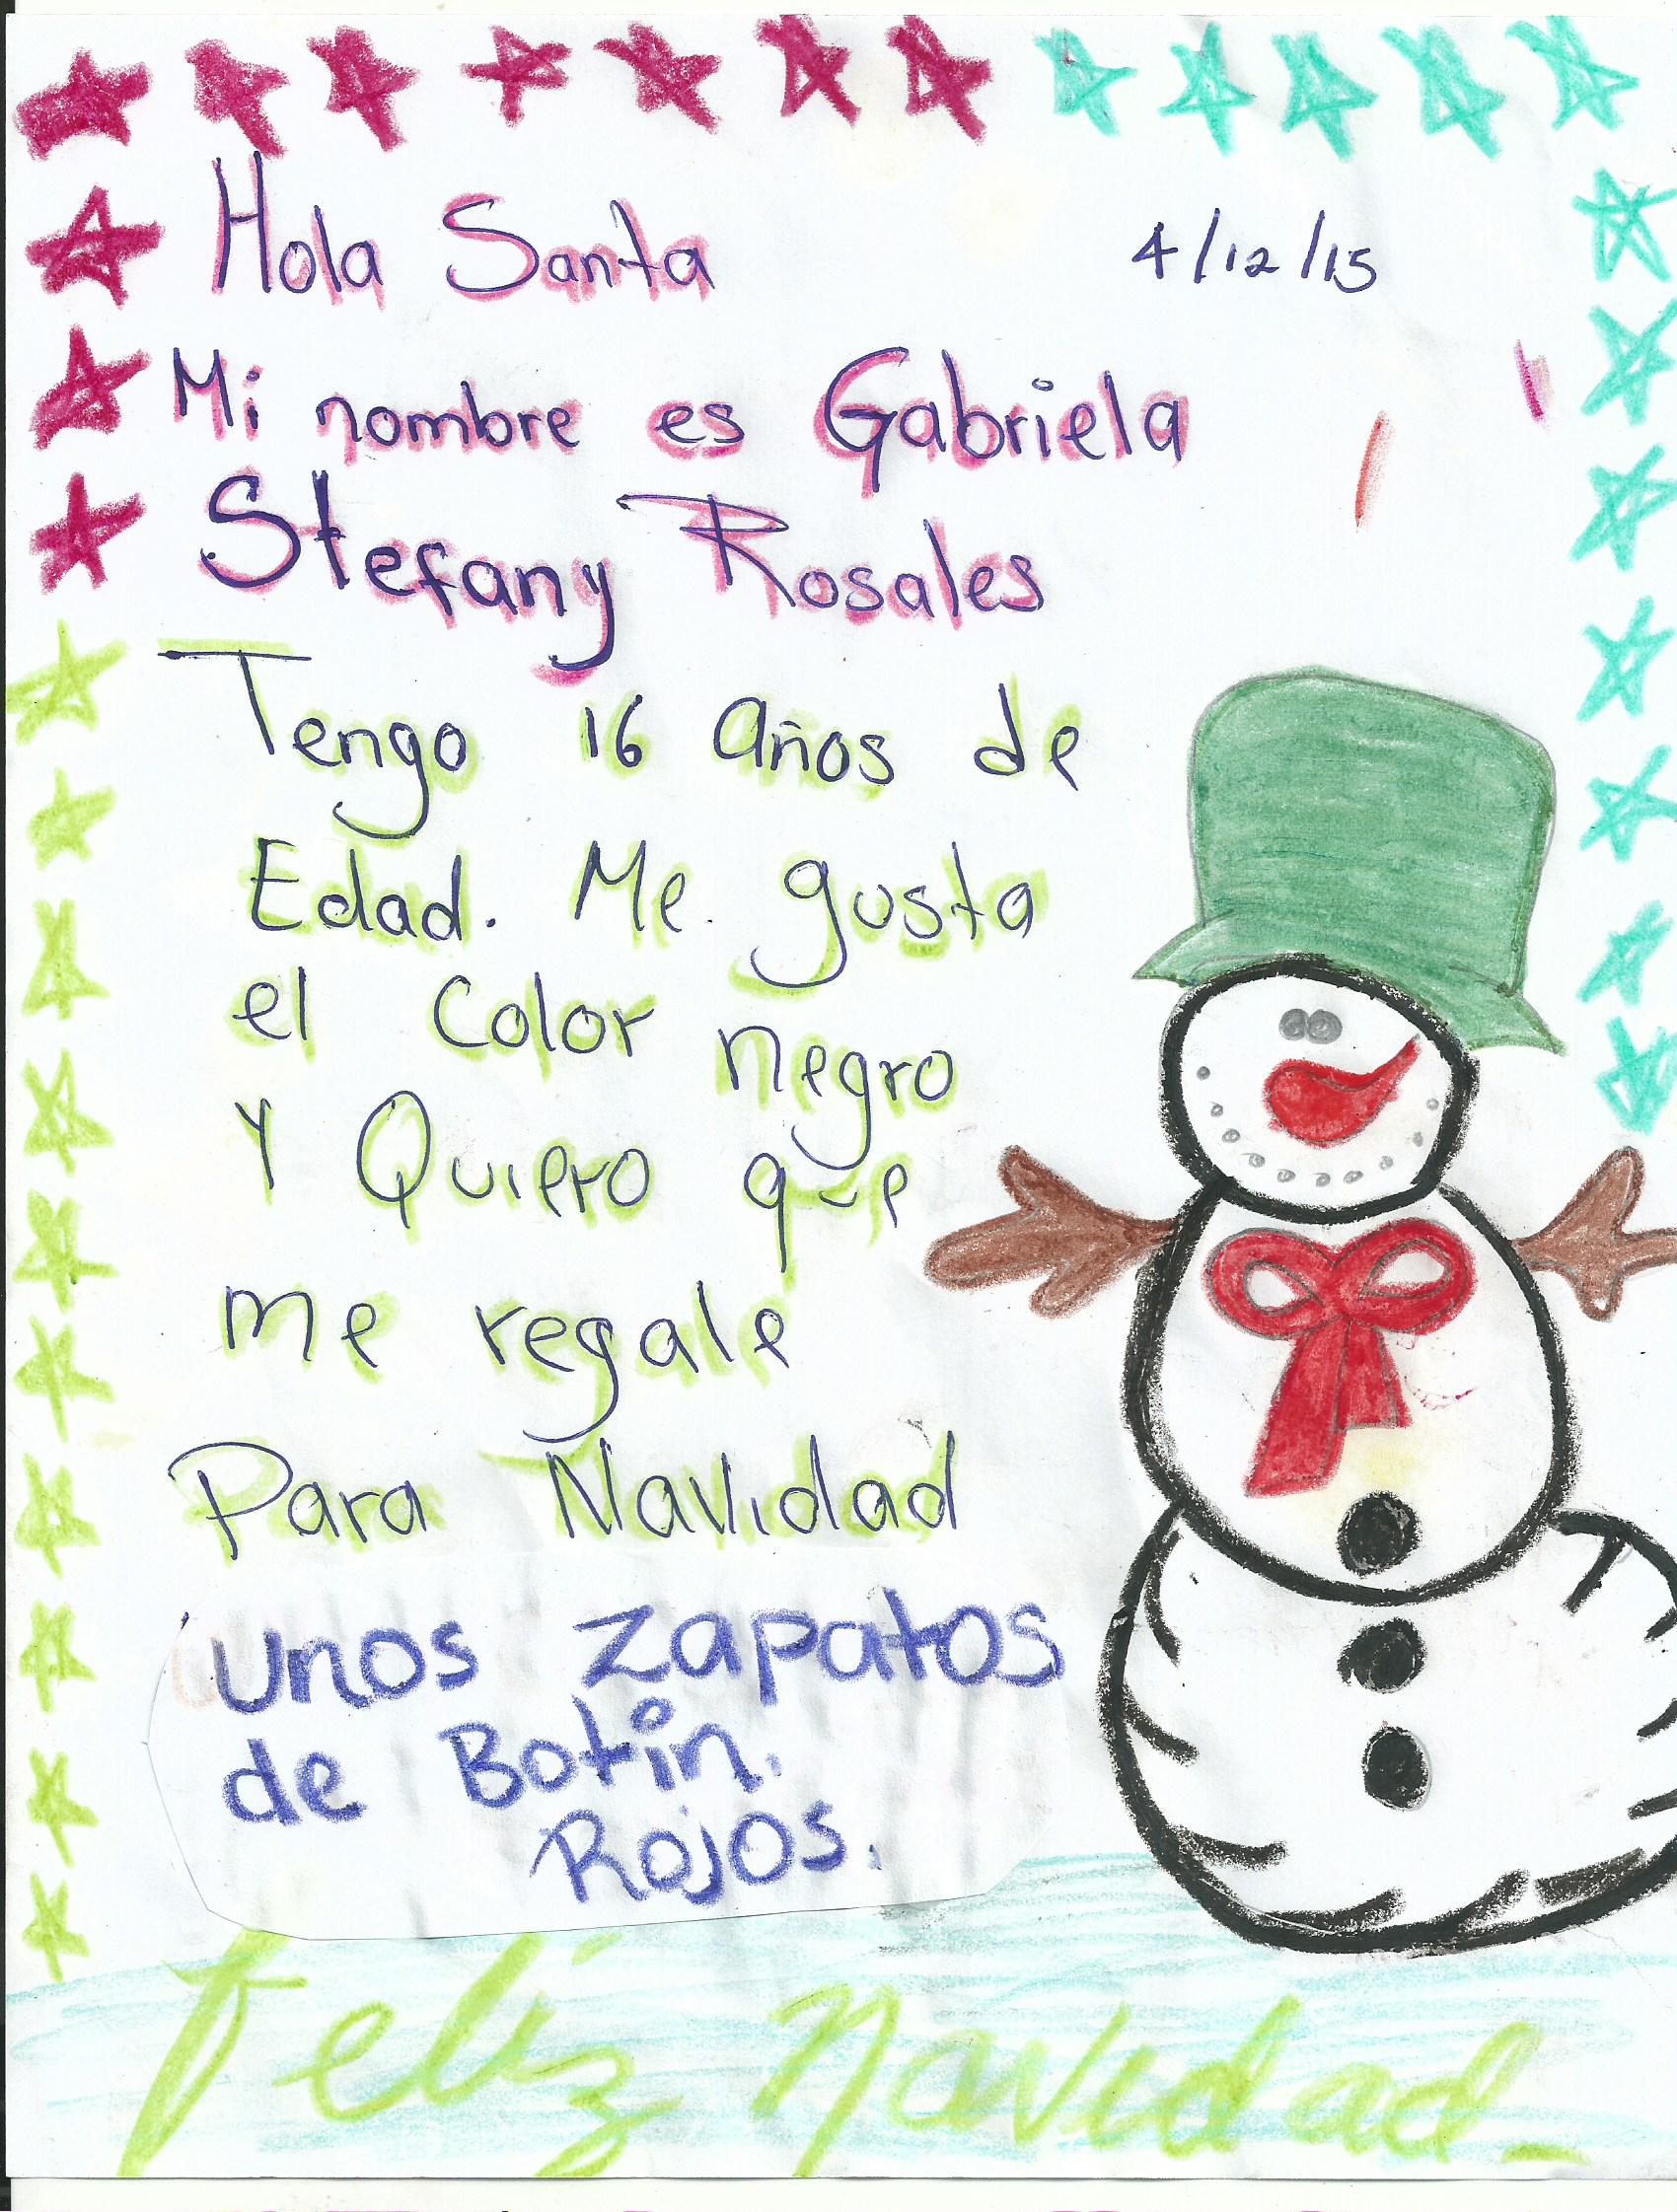 Hola Santa 4/12/15
Mi nombre es Gabriela
Stefany Rosales
Tengo 16 años de
Edad. Me gusta
el color negro
Y Quiero que
me regale
Para Navidad
unos zapatos
de Botin.
Rojos.
Feliz Navidad